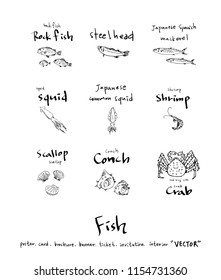 rock fish
Rock fish
steel head
Japanese Spanish
mackerel
squid
squid
Japanese
common squid
shrimp
Shrimp
scallop
Scallop
conch
Conch
crab
Crab
Fish
poster. card. brochure. banner. ticket. invitation. interior "VECTOR"
shutterstock.com · 1154731360